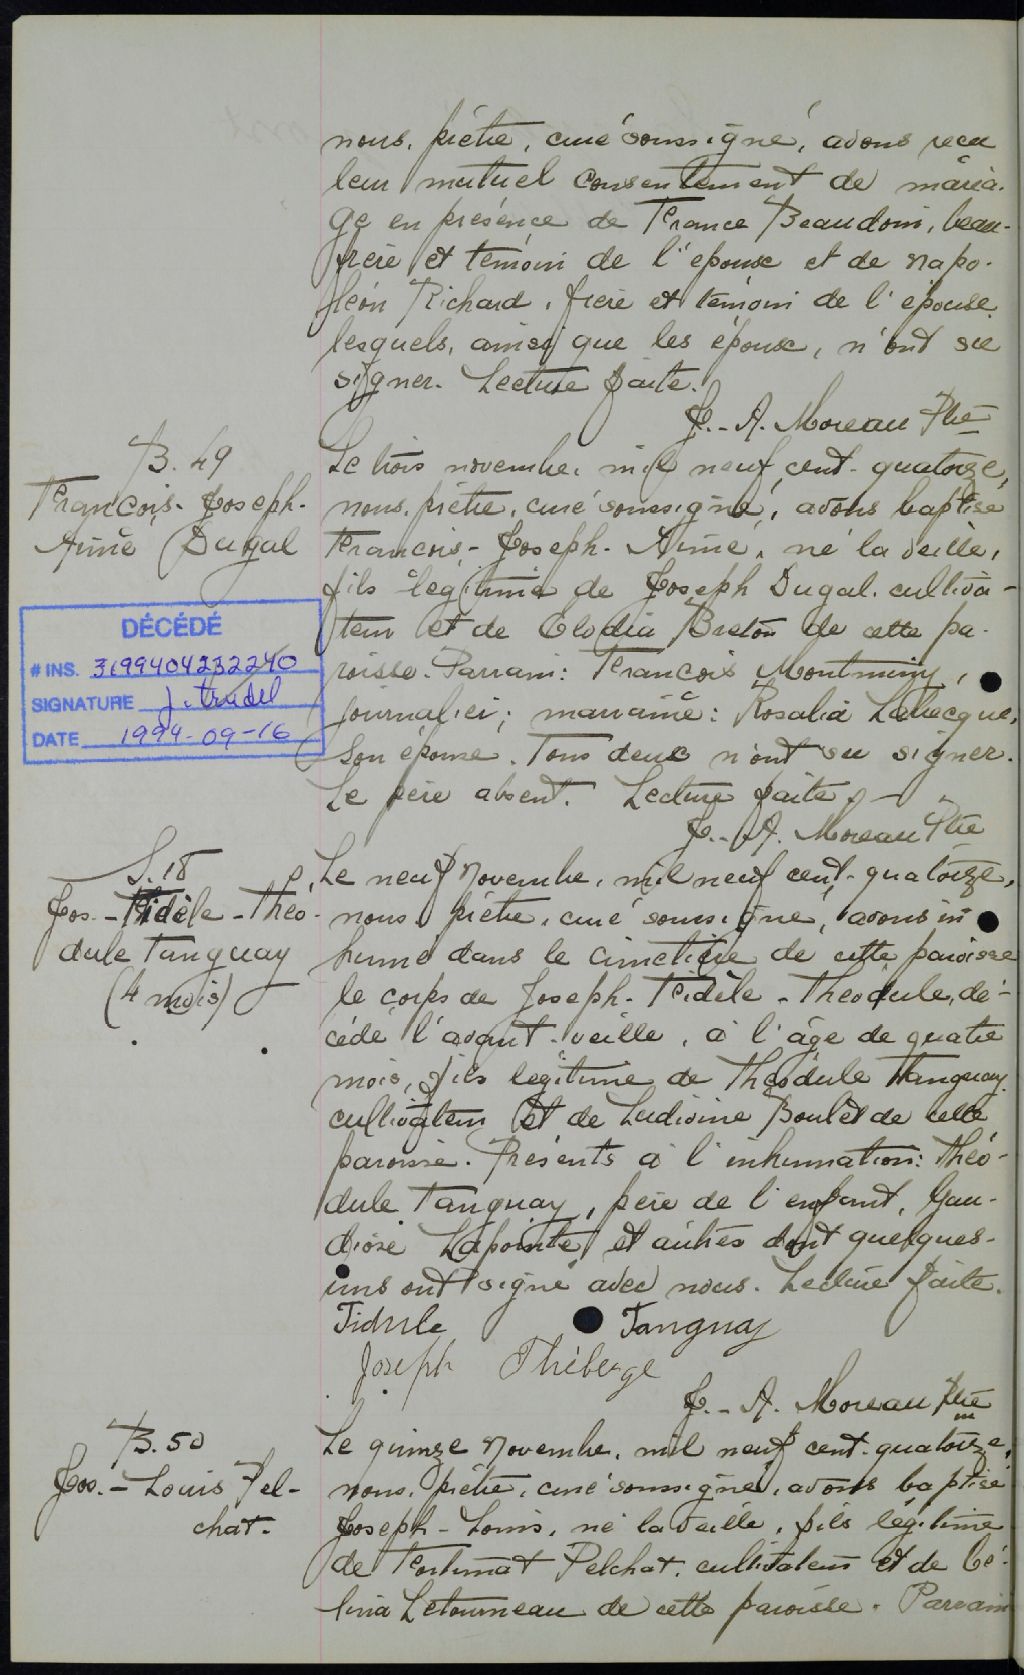 nous, prêtre, curé soussigné, avons reçu
leur mutuel consentement de maria-
ge en présence de France Beaudoin, beau-
frère et témoin de l'époux et de Napo-
léon Richard, frère et témoin de l'épouse
lesquels, ainsi que les époux, n'ont su
signer. Lecture faite.
J.-A. Moreau Ptre
B. 49
François-Joseph-
Aimé Dugal
Le trois novembre, mil neuf cent-quatorze,
nous, prêtre, curé soussigné, avons baptisé
François-Joseph-Aimé, né la veille,
fils légitime de Joseph Dugal, cultiva-
teur et de Elodia Breton de cette pa-
roisse. Parrain: François Montminy,
journalier; marraine: Rosalia Labecque,
son épouse. Tous deux n'ont su signer.
Le père absent. Lecture faite.
J.-A. Moreau Ptre
DÉCÉDÉ
# INS. 3199404232240
SIGNATURE J. Trudel
DATE 1994-09-16
S. 18
Jos.-Fidèle-Théo-
dule Tanguay
(4 mois)
Le neuf Novembre, mil neuf cent-quatorze,
nous, prêtre, curé soussigné, avons in
humé dans le cimetière de cette paroisse
le corps de Joseph-Fidèle-Théodule, dé-
cédé l'avant-veille, à l'âge de quatre
mois, fils légitime de Théodule Tanguay
cultivateur et de Ludivine Boulet de cette
paroisse. Présents à l'inhumation: Théo-
dule Tanguay, père de l'enfant, Gau-
diose Lapointe, et autres dont quelques-
uns ont signé avec nous. Lecture faite.
Tidule Tanguay
Joseph Théberge
J.-A. Moreau Ptre
B. 50
Jos.-Louis Pel-
chat.
Le quinze Novembre, mil neuf cent-quatorze,
nous, prêtre, curé soussigné, avons baptisé
Joseph-Louis, né la veille, fils légitime
de Fortunat Pelchat, cultivateur et de Cé-
lina Letourneau de cette paroisse. Parrain